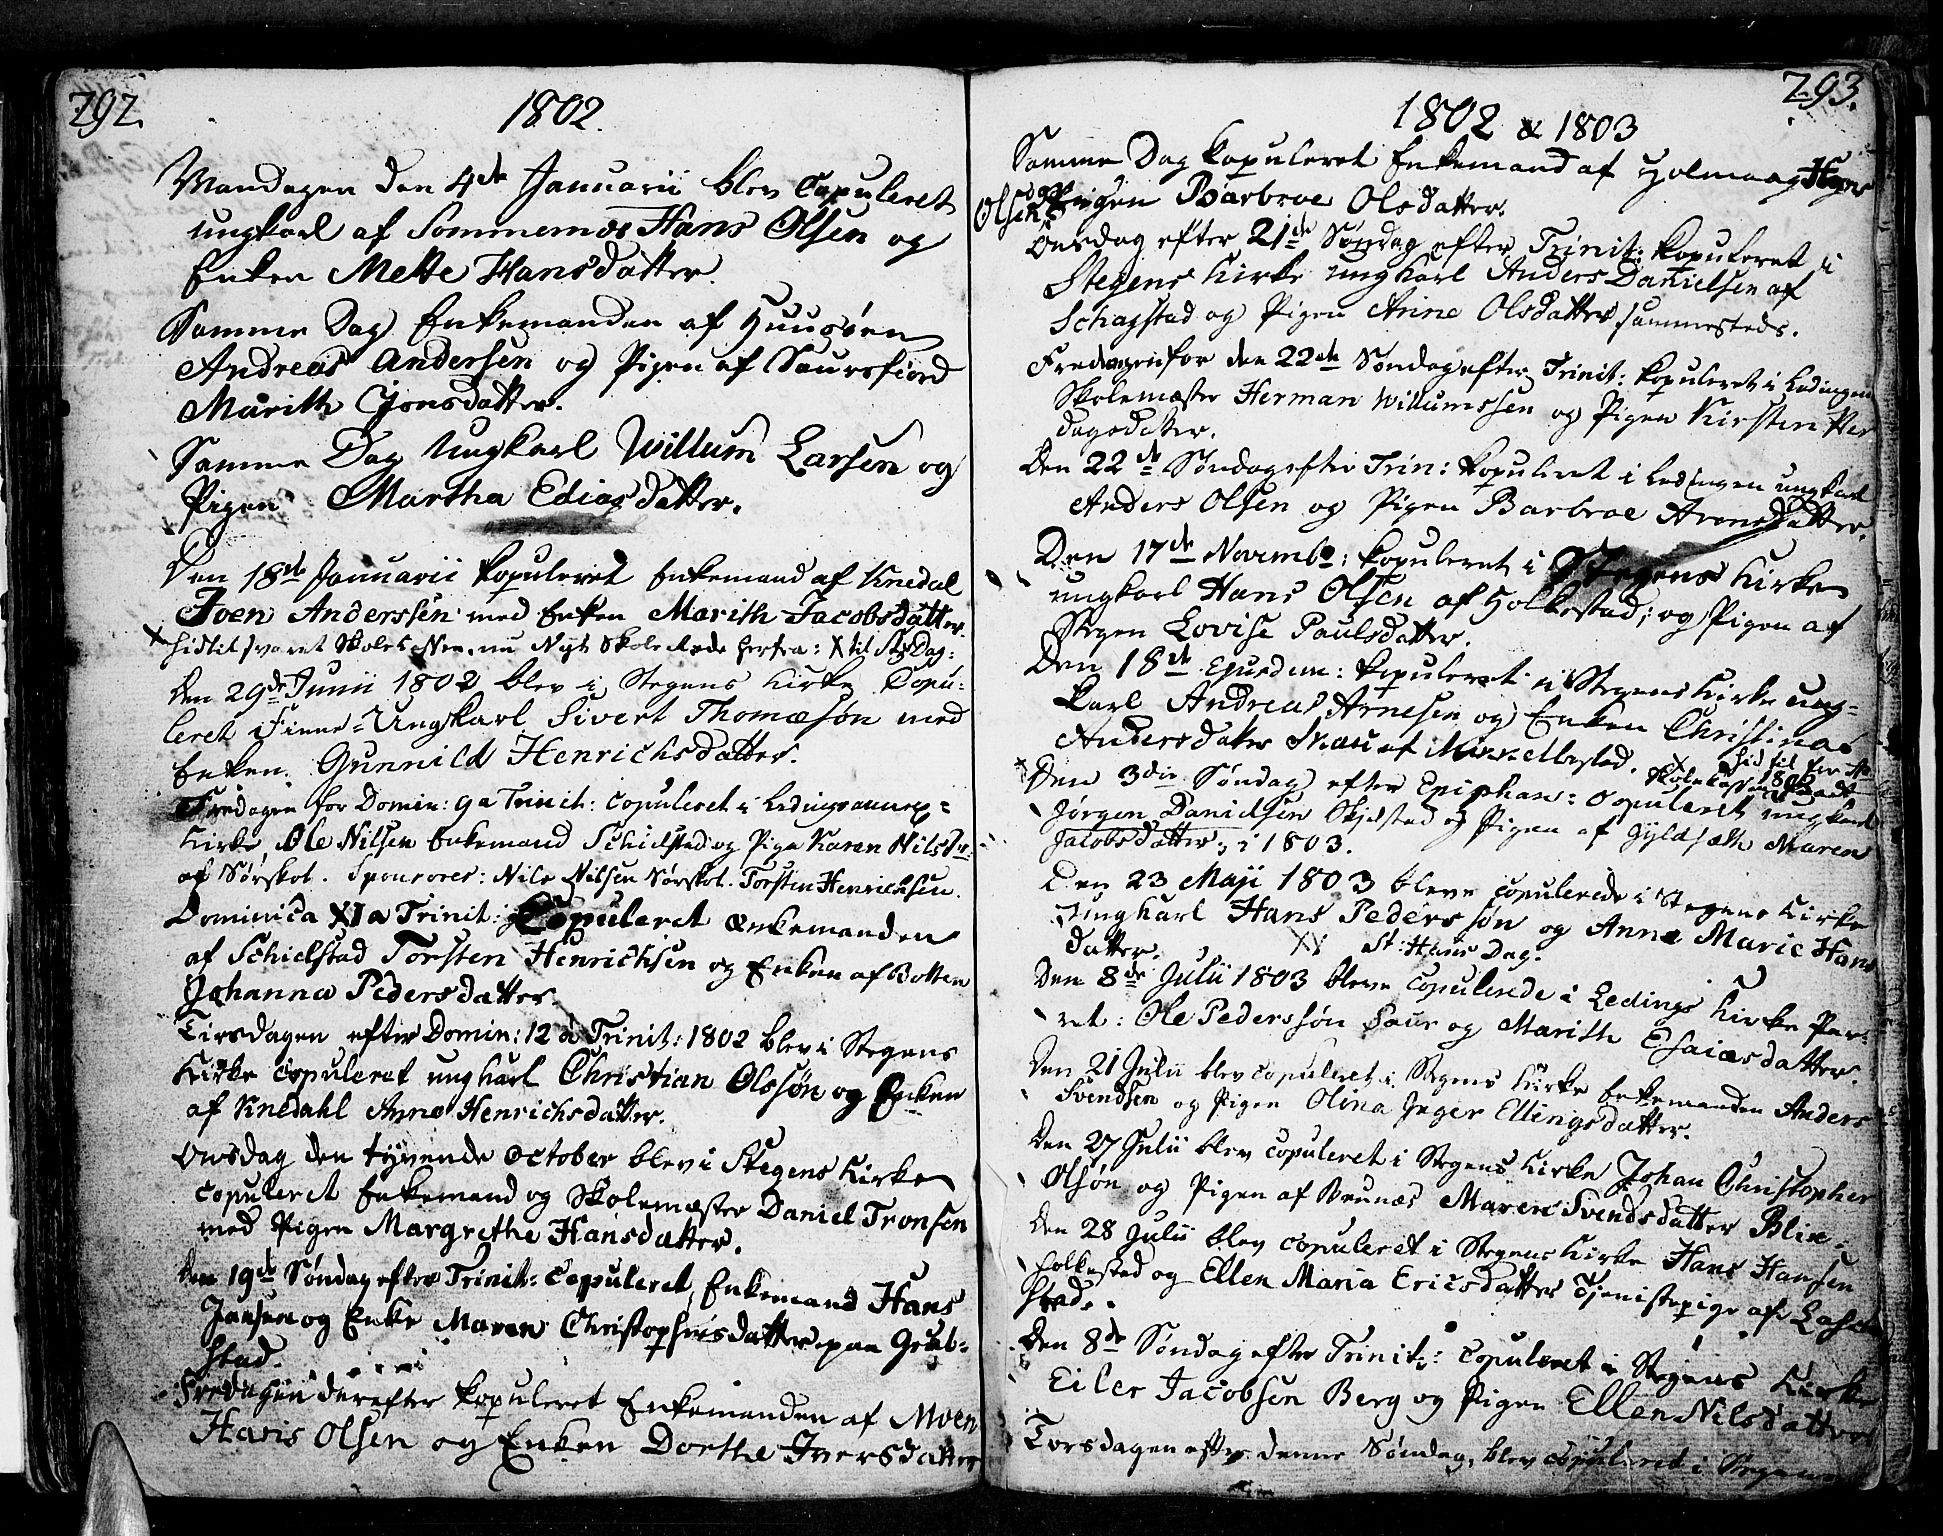 292.
1802.
Mandagen den 4de Januarii blev Copuleret
ungkarl af Sommernæs Hans Olsen og
Enken Mette Hansdatter.
Samme Dag Enkemanden af Huusøen
Andreas Andersen og Pigen af Saursfiord
Marith Jonsdatter.
Samme Dag Ungkarl Willum Larsen og
Pigen Martha Ediasdatter.
Den 18de Januarii kopuleret Enkemand af Knedal
Iven Anderssen med Enken Marith Jacobsdatter.
hidtil svaret Skole nu Nyt Skole herfra: X til St. Dag:
Den 29de Junii 1802 blev i Stegens Kirke Copu-
leret Finne-Ungkarl Sivert Thomæsøn med
Enken Gunnild Henrichsdatter.
Fredagen for Domin: 9a Trinit: Copuleret i Ledings annex-
Kirke Ole Nilsen Enkemand Schielstad og Pige Karen Nilsdr.
af Sørskot. Sponsores: Nils Nilsen Sørskot. Torsten Henrichsen.
Dominica XIa Trinit: Copuleret Enkemanden
af Schielstad Torsten Henrichsen og Enken af Botten
Johanna Pedersdatter.
Tirsdagen efter Domin: 12a Trinit: 1802 blev i Stegens
Kirke Copuleret ungkarl Christian Olssøn og Enken
af Knedahl Anne Henrichsdatter.
Onsdag den tyvende October blev i Stegens Kirke
Copuleret Enkemand og Skolemester Daniel Tronsen
med Pigen Margrethe Hansdatter.
Den 19de Søndag efter Trinit: Copuleret, Enkemand Hans
Jansen og Enke Maren Christophersdatter paa
stad.
Fredagen derefter kopuleret Enkemanden af Moen
Hans Olsen og Enken Dorthe Iversdatter
293.
1802 & 1803
Samme Dag kopuleret Enkemand af Holmaag Hans
Olsen og Pigen Barbroe Olsdatter.
Onsdag efter 21de Søndag efter Trinit: kopuleret i
Stegens Kirke ungkarl Anders Danielsen af
Schagstad og Pigen Anne Olsdatter sammesteds.
Fredagen for den 22de Søndag efter Trinit: kopuleret i Ledingen
Skolemester Herman Willumssen og Pigen Kirsten Per
dagsdatter.
Den 22de Søndag efter Trin: kopuleret i Ledingen ungkarl
Anders Olsen og Pigen Barbroe Arensdatter.
Den 17de Novembr: kopuleret i Stegens Kirke
ungkarl Hans Olsen af Holkestad; og Pigen af
Stegen Lovise Paulsdatter.
Den 18de Ejusdem: kopuleret i Stegens Kirke ung-
karl Andreas Arnesen og Enken Christina
Andersdatter
hid til
Den 3die Søndag efter Epiphan: Copuleret ungkarl
Jørgen Danielsen Skjelstad og Pigen af Gyldsæth Maren
Jacobsdatter; i 1803.
Den 23 Maji 1803 bleve copulerede i Stegens Kirke
Ungkarl Hans Pederssøn og Anna Marie Hans
datter. St: Hans Dag.
Den 8de Julii 1803 bleve Copulerede i Ledings Kirke Par-
ret: Ole Pederssøn Saur og Marith Esaiasdatter.
Den 21 Julii blev copuleret i Stegens Kirke Enkemanden Anders
Svendsen og Pigen Olina Inger Ellingsdatter.
Den 27 Julii blev copuleret i Stegens Kirke Johan Christopher
Olsøn og Pigen af Brunæs Maren Svendsdatter Blix.
Den 28 Julii blev copuleret i Stegens Kirke Hans Hansen
Holkestad og Ellen Maria Ericsdatter Tjenistepige af
stad.
Den 8de Søndag efter Trinit: copuleret i Stegens Kirke
Eiler Jacobsen Berg og Pigen Ellen Nilsdatter
Torsdagen efter denne Søndag, blev copuleret i Stegens